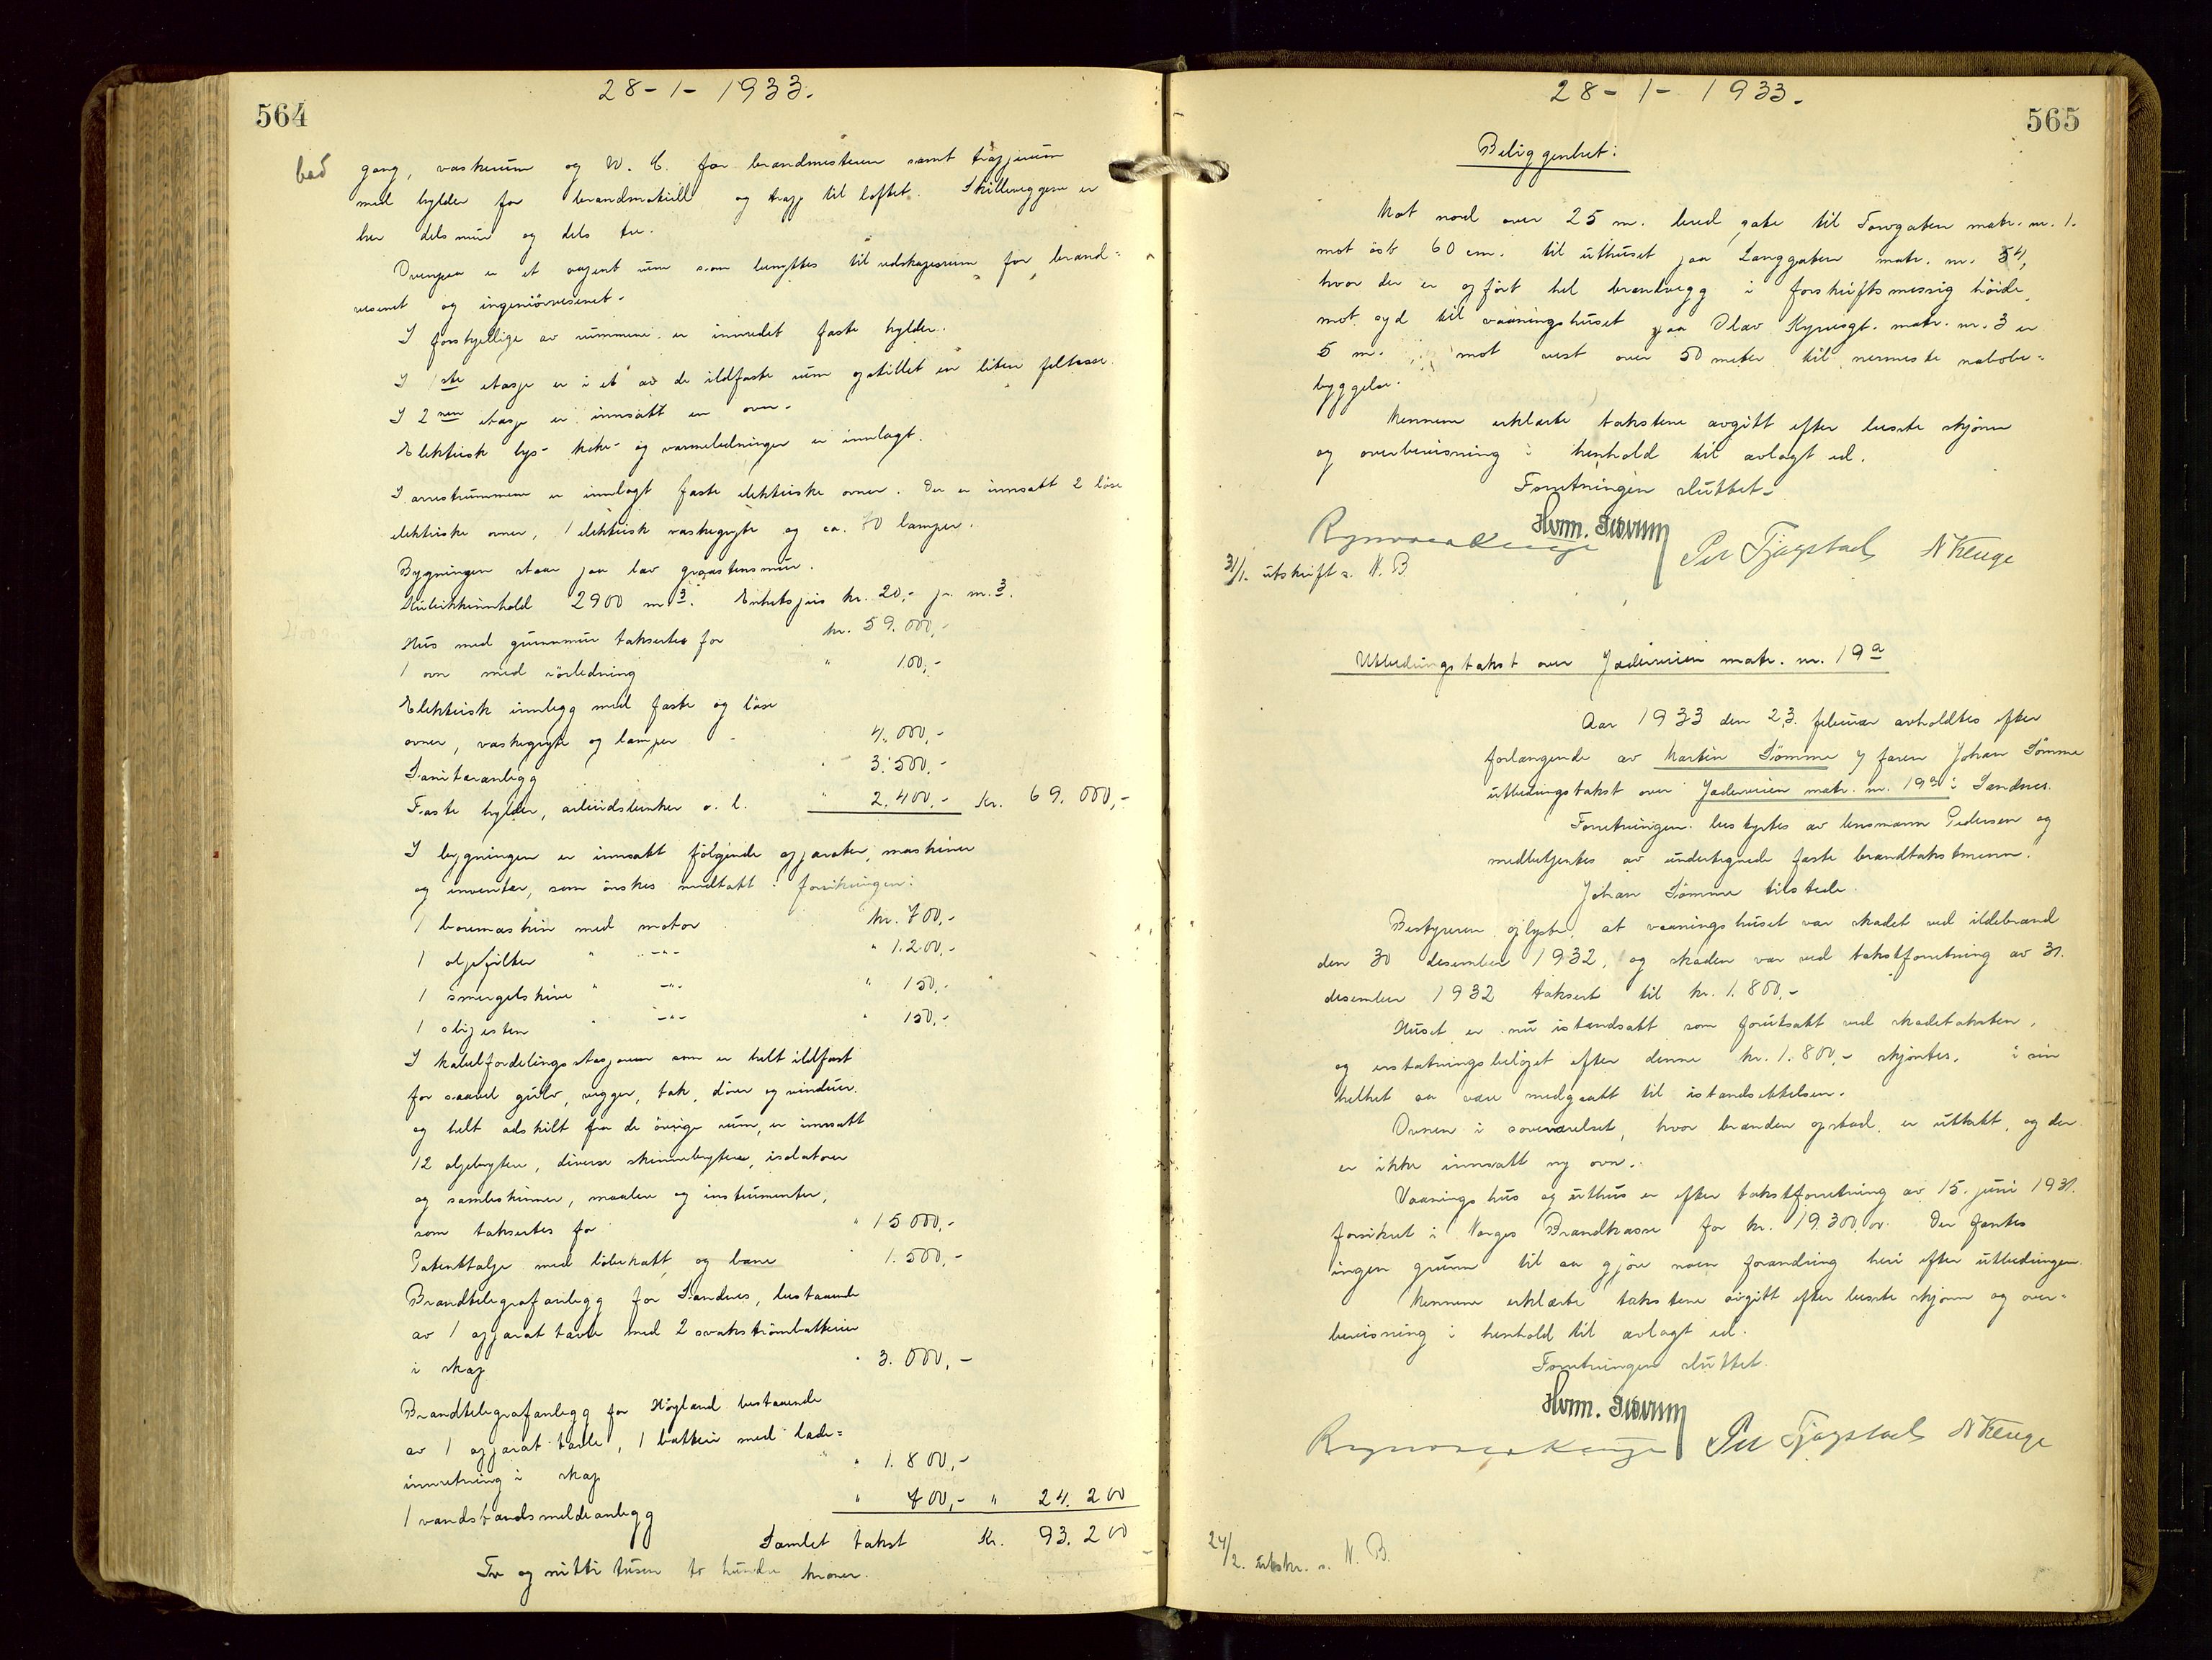 564
28-1-1933.
bad
gang, vaskerum og W. C. for brandmesteren samt trapperum
med hylder for brandmateriell og trapp til loftet. Skilleveggene er
her dels mur og dels tre.
Ovenpaa er et værent rum som benyttes til redskapsrum for brand-
vesenet og ingeniörvesenet.
I forskjellige av rummene er innredet faste hylder.
I 1ste etasje er i et av de ildfaste rum opstillet en liten feltesse.
I 2nen etasje er innsatt en ovn.
Elektrisk lys- koke- og varmeledninger er innlagt.
I arrestrummene er innlagt faste elektriske ovner. Der er innsatt 2 löse
elektriske ovner, 1 elektrisk vaskegryte og ca. 70 lamper.
Bygningen staar paa lav graastensmur.
Kubikkinnhold 2900 m3. Enhetspris kr. 20,- pr. m.3.
Hus med grunnmur takseres for kr. 59.000,-
1 ovn med rörledning " 100,-
Elektrisk innlegg med faste og löse
ovner, vaskegryte og lamper " 4.000,-
Sanitæranlegg " 3.500,-
Faste hylder, arbeidsbenker o. l. " 2.400,- Kr. 69.000,-
I bygningen er innsatt fölgende apparater, maskiner
og inventar, som önskes medtatt i forsikringen:
1 boremaskin med motor kr. 700,-
1 oljefilter " -"- " 1.200,-
1 smergelskive " -"- " 150,-
1 slipesten " -"- " 150,-
I kabelfordelingsstasjonen som er helt ildfast
for saavel gulv, vegger, tak, dörer og vinduer.
og helt adskilt fra de övrige rum, er innsatt
12 oljebrytere, diverse skinnebrytere, isolatorer
og samleskinner, maalere og instrumenter,
som takseres for " 15000,-
Patenttalje med löbekatt og bane " 1.500,-
Brandtelegrafanlegg for Sandnes, bestaaende
av 1 apparat tavle med 2 svakströmbatterier
i skap " 3.000,-
Brandtelegrafanlegg for Höyland bestaaende
av 1 apparat tavle, 1 batteri med lade-
innretning i skap " 1.800,-
1 vandstandsmeldeanlegg " 700,- " 24.200
Samlet takst Kr. 93.200
Tre og nitti tusen to hundre kroner.
28-1-1933.
565
Beliggenhet:
Mot nord over 25 m. bred gate til Torvgaten matr. nr. 1.
mot öst 60 cm. til uthuset paa Langgaten matr. nr. 54,
hvor der er opfört hel brandvegg i forskriftsmessig höide,
mot syd til vaaningshuset paa Olav Kyrresgt. matr. nr. 3 er
5 m. mot vest over 50 meter til nermeste nabobe-
byggelse.
Mennene erklærte takstene avgitt efter beste skjönn
og overbevisning i henhold til avlagt ed.
Forretningen sluttet.
Per Tjågstad N Kluge
31/1. utskrift s. N. B.
Utbedringstakst over Jæderveien matr. nr. 19a
Aar 1933 den 23. februar avholdtes efter
forlangende av Martin Sömme v/ faren Johan Sömme
utbedringstakst over Jæderveien matr. nr. 19a i Sandnes.
Forretningen bestyrtes av lensmann Pedersen og
medbetjentes av undertegnede faste brandtakstmenn.
Johan Sömme tilstede.
Bestyreren oplyste, at vaaningshuset var skadet ved ildebrand
den 30 desember 1932, og skaden var ved takstforretning av 31.
desember 1932 taksert til kr. 1.800,-
Huset er nu istandsatt som forutsatt ved skadetaksten,
og erstatningsbelöpet efter denne kr. 1.800,- skjöntes, i sin
helhet aa være medgaatt til istandsettelsen.
Ovnen i soveværelset, hvor branden opstod, er uttatt, og der
er ikke innsatt ny ovn.
Vaaningshus og uthus er efter takstforretning av 15. juni 1931.
forsikret i Norges Brandkasse for kr. 19.300,00. Der fantes
ingen grunn til aa gjöre noen forandring heri efter utbedringen.
Mennene erklærte takstene avgitt efter beste skjönn og over-
bevisning i henhold til avlagt ed.
Forretningen sluttet.
Per Tjågstad N Kluge
24/2. utskr. s. N. B.